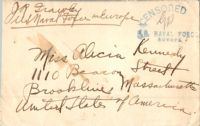 U.S. Naval Force in Europe
CENSORED
U.S. NAVAL FORCES
EUROPE
Miss Alicia Kennedy
1110 Beacon Street
Brookline, Massachusetts
United States of America.